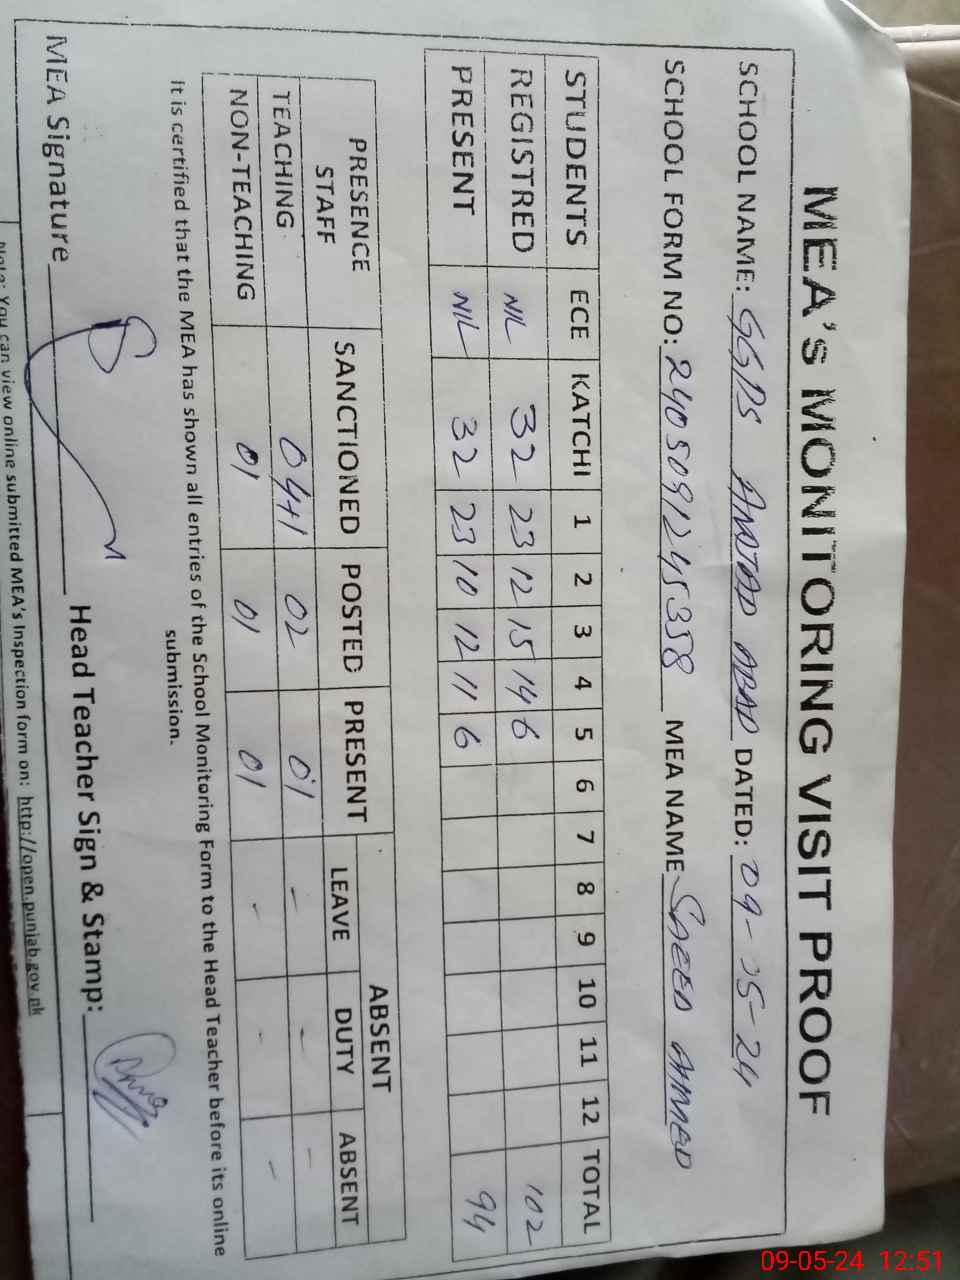 MEA's MONITORING VISIT PROOF
SCHOOL NAME: GGPS AMJAD ABAD DATED: 09-05-24
SCHOOL FORM NO: 2405091245358 MEA NAME SAEED AHMED
STUDENTS ECE KATCHI 1 2 3 4 5 6 7 8 9 10 11 12 TOTAL
REGISTRED NIL 32 23 12 15 14 6 102
PRESENT NIL 32 23 10 12 11 6 94
PRESENCE STAFF SANCTIONED POSTED PRESENT ABSENT
LEAVE DUTY ABSENT
TEACHING 04+1 02 01 - - -
NON-TEACHING 01 01 01 - - -
It is certified that the MEA has shown all entries of the School Monitoring Form to the Head Teacher before its online
submission.
MEA Signature Head Teacher Sign & Stamp:
Note: You can view online submitted MEA's Inspection form on: http://open.punjab.gov.pk
09-05-24 12:51